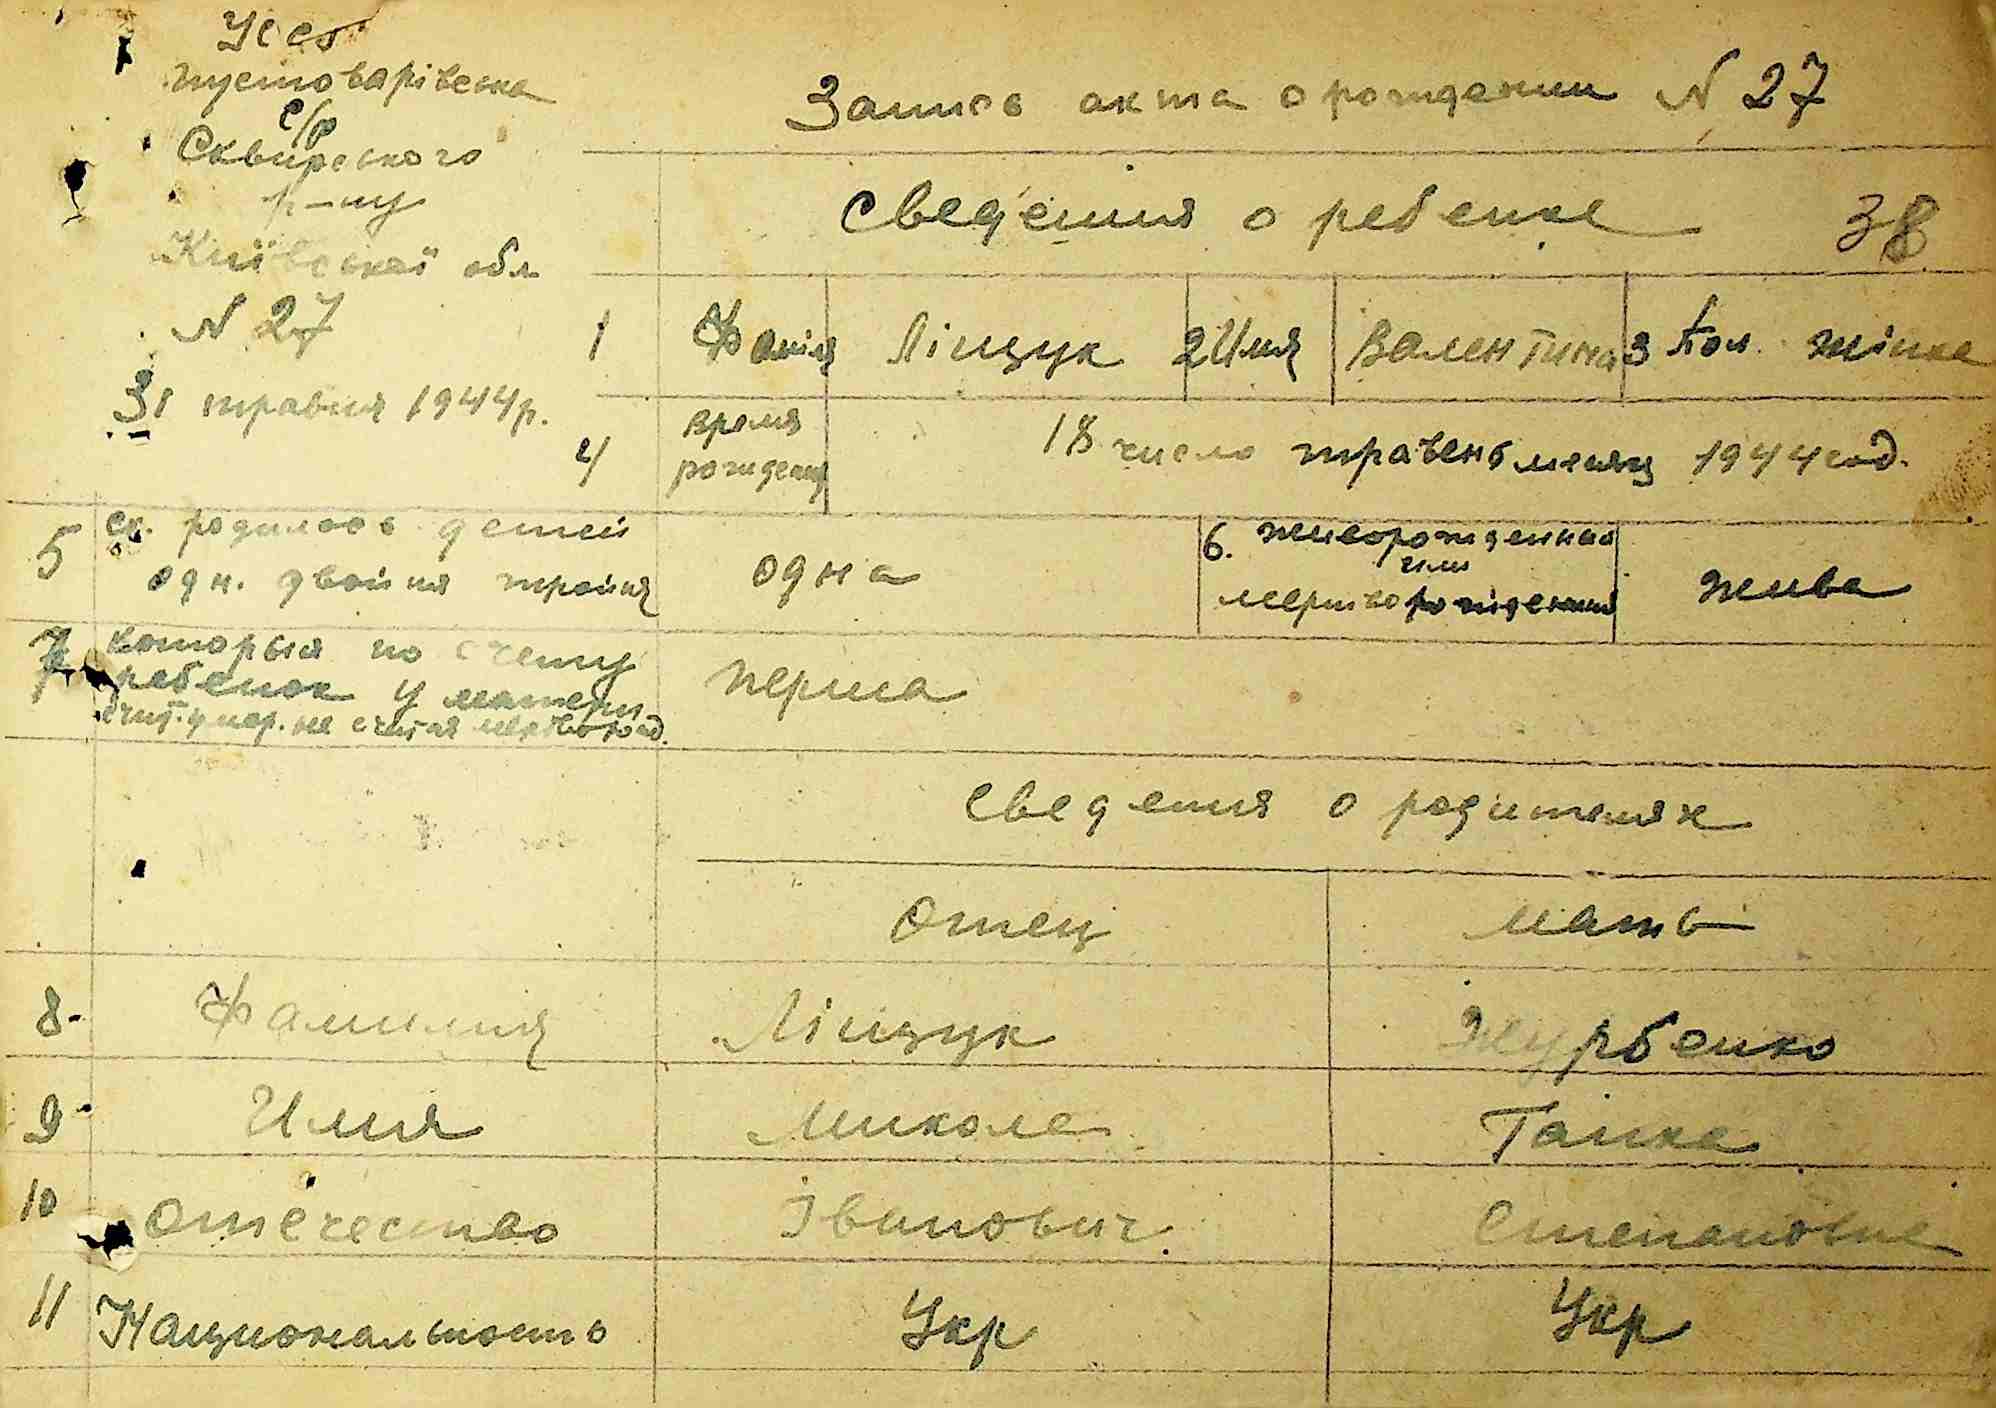 УССР
Пустоварівська
с/р
Сквирського
р-ну
Київської обл
N 27
31 травня 1944р.
Запись акта о рождении N 27
Сведения о ребенке 38
1 Фамілія Ліщук 2 Имя Валентина 3 Пол. жінка
4 время рождения 18 число травень месяц 1944 год.
5 ск. родилось детей
одн. двойня тройня одна
6. живорожденный
или
мертворожденный жива
7 которыя по счету
ребенок у матери
счит. умер. не считая мертворожд. перша
Сведения о родителях
Отец мать
8. Фамилия Ліщук Журбенко
9 Имя Микола Ганна
10 Отечество Іванович Степановна
11 Национальность Укр Укр